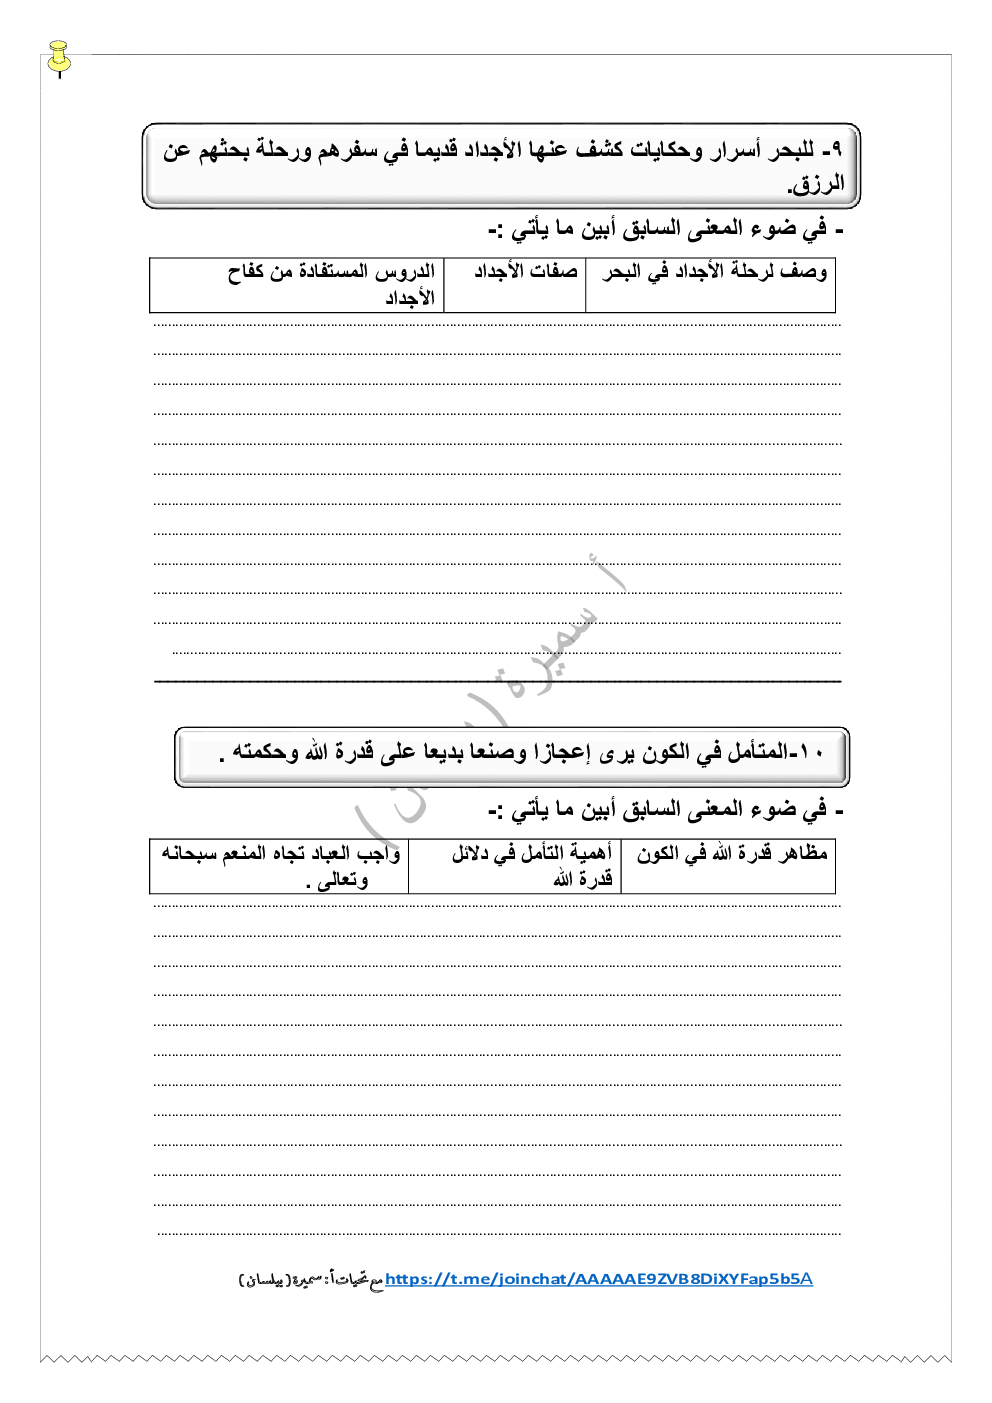 ٩- للبحر أسرار وحكايات كشف عنها الأجداد قديما في سفرهم ورحلة بحثهم عن
الرزق.
- في ضوء المعنى السابق أبين ما يأتي :-
وصف لرحلة الأجداد في البحر
صفات الأجداد
الدروس المستفادة من كفاح
الأجداد
أ سميرة (
١٠-المتأمل في الكون يرى إعجازا وصنعا بديعا على قدرة الله وحكمته .
- في ضوء المعنى السابق أبين ما يأتي :-
مظاهر قدرة الله في الكون
أهمية التأمل في دلائل
قدرة الله
واجب العباد تجاه المنعم سبحانه
وتعالى .
https://t.me/joinchat/AAAAAE9ZVB8DiXYFap5b5A مع تحيات أ: سميرة( بيلسان )